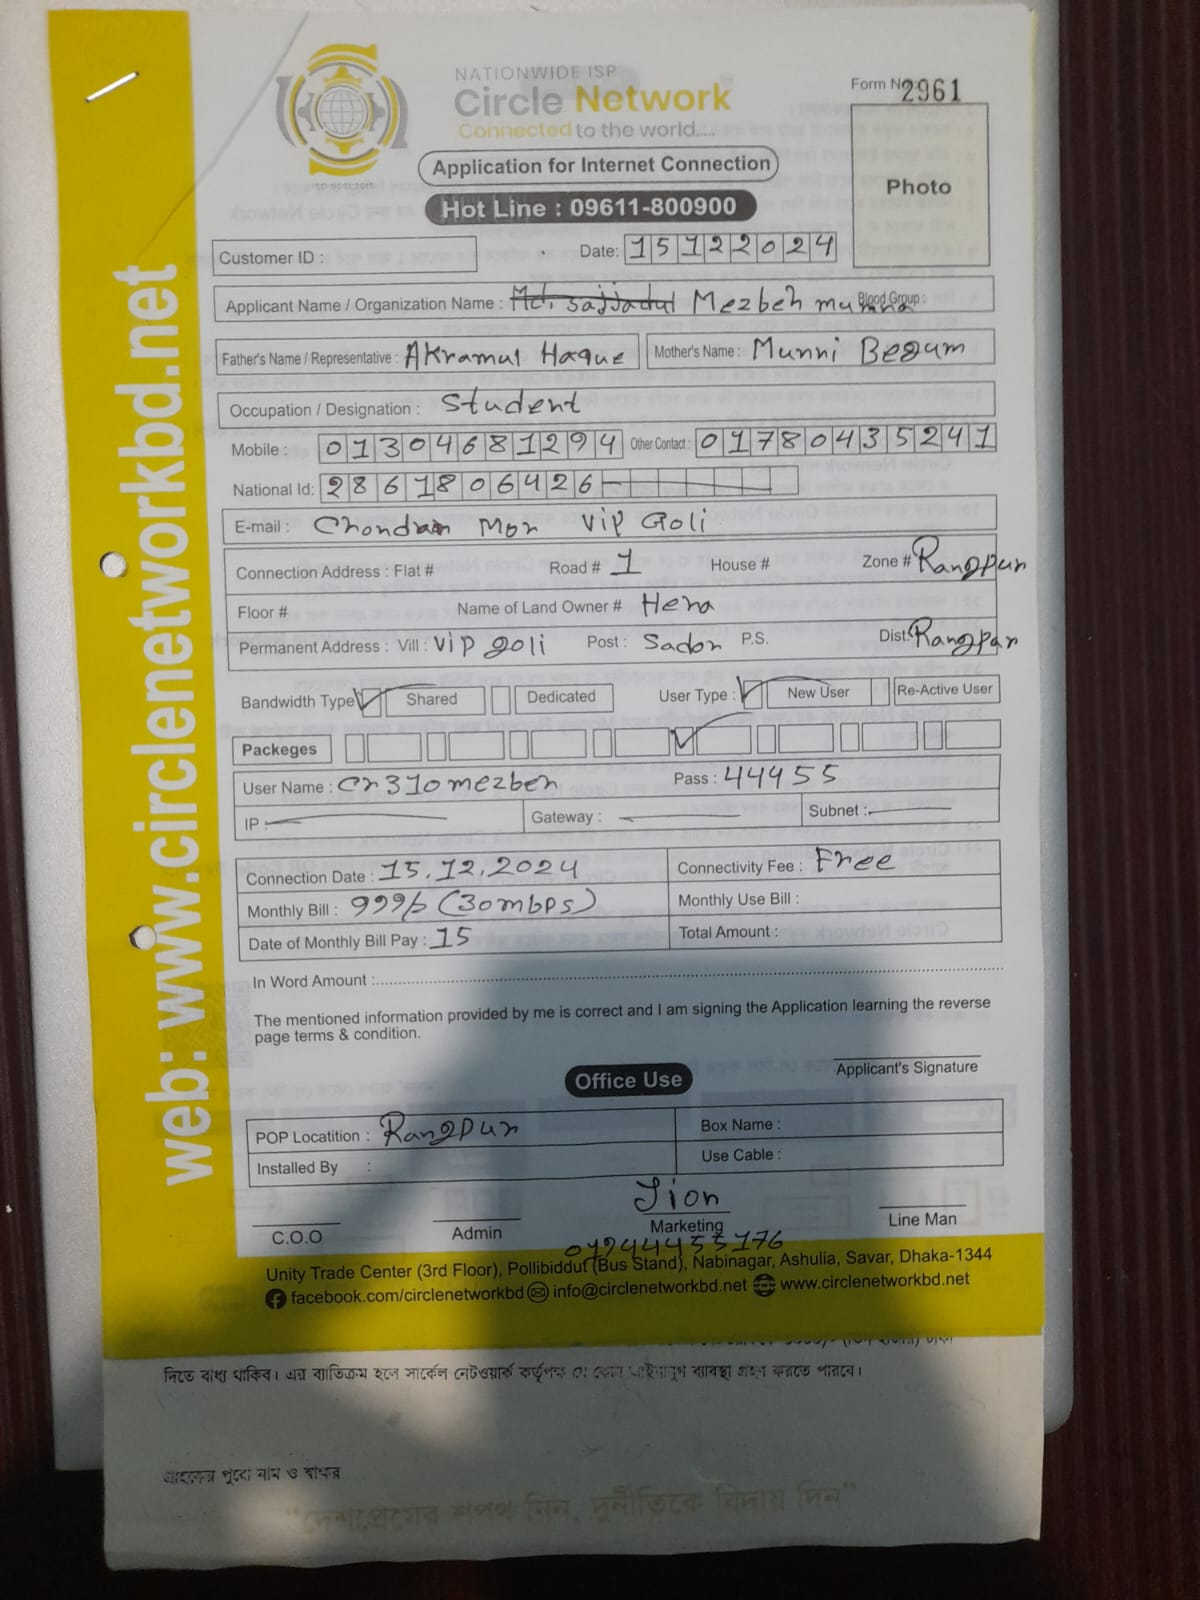 NATIONWIDE ISP
Circle Network
Connected to the world....
Form No 2961
Application for Internet Connection
Photo
Hot Line : 09611-800900
Customer ID :
Date: 15122024
Applicant Name / Organization Name : Md. Sajjadul Mezbeh munna Blood Group :
Father's Name / Representative : AKramul Haque Mother's Name : Munni Begum
Occupation / Designation : Student
Mobile : 01304681294 Other Contact : 01780435241
National Id: 2861806426
E-mail : Chondan Mon Vip Goli
Connection Address : Flat # Road # 1 House # Zone # Rangpur
Floor # Name of Land Owner # Hera
Permanent Address : Vill : Vip goli Post : Sador P.S. Dist: Rangpur
Bandwidth Type Shared Dedicated User Type : New User Re-Active User
Packeges
User Name : Cr310mezbeh Pass : 44455
IP : Gateway : Subnet :
Connection Date : 15.12.2024 Connectivity Fee : Free
Monthly Bill : 999/= (30mbps) Monthly Use Bill :
Date of Monthly Bill Pay : 15 Total Amount :
In Word Amount :
The mentioned information provided by me is correct and I am signing the Application learning the reverse
page terms & condition.
Applicant's Signature
Office Use
POP Locatition : Rangpur Box Name :
Installed By : Use Cable :
Jion
C.O.O Admin Marketing Line Man
Unity Trade Center (3rd Floor), Pollibiddut (Bus Stand), Nabinagar, Ashulia, Savar, Dhaka-1344
facebook.com/circlenetworkbd info@circlenetworkbd.net www.circlenetworkbd.net
web: www.circlenetworkbd.net
দিতে বাধ্য থাকিব। এর ব্যতিক্রম হলে সার্কেল নেটওয়ার্ক কর্তৃপক্ষ যে কোন আইনানুগ ব্যবস্থা গ্রহণ করতে পারবে।
গ্রাহকের পুরো নাম ও স্বাক্ষর
“দেশপ্রেমের শপথ নিন, দুর্নীতিকে বিদায় দিন”